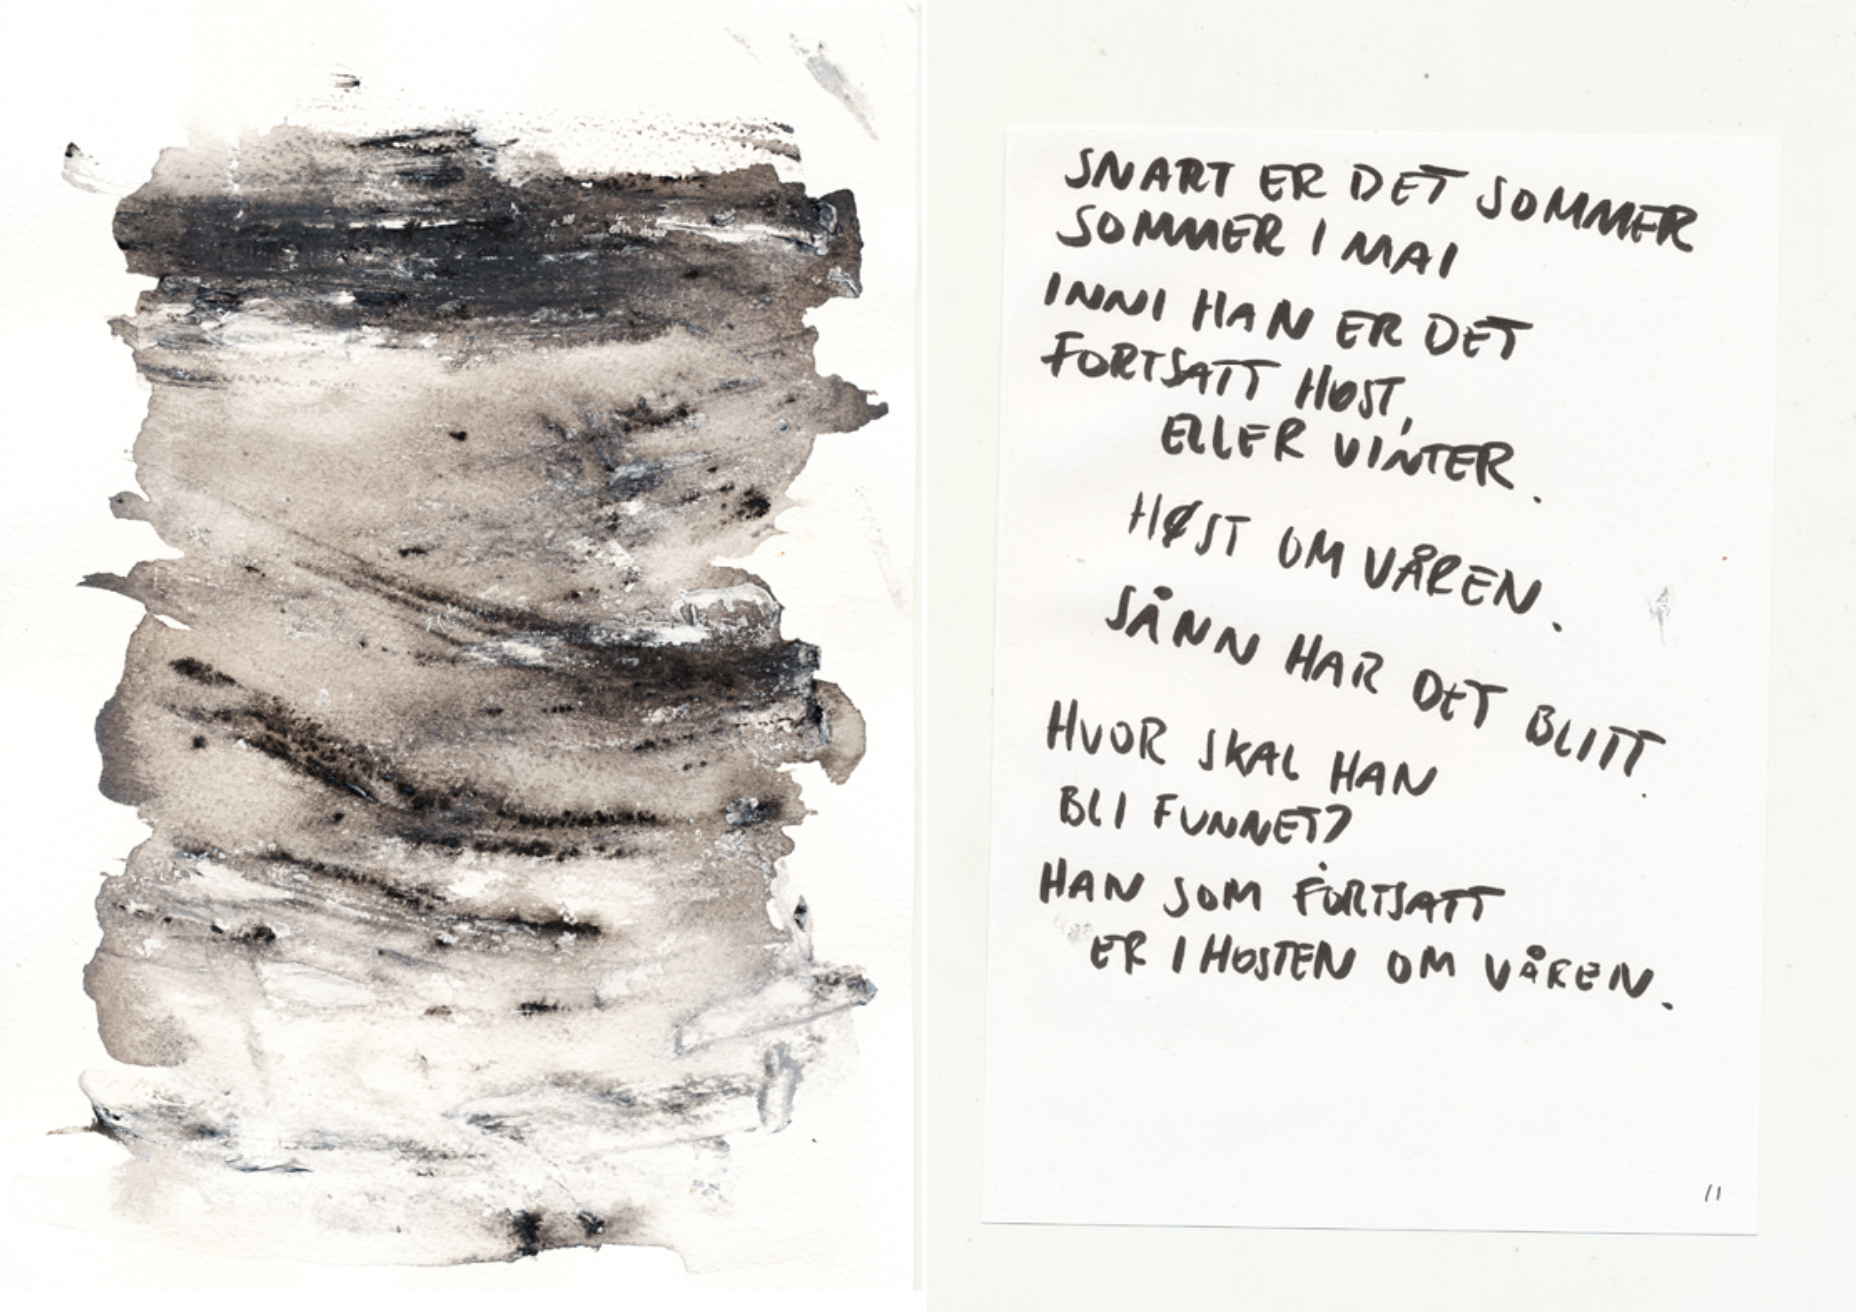 SNART ER DET SOMMER
SOMMER I MAI
INNI HAN ER DET
FORTSATT HØST,
ELLER VINTER.
HØST OM VÅREN.
SÅNN HAR DET BLITT.
HVOR SKAL HAN
BLI FUNNET?
HAN SOM FORTSATT
ER I HØSTEN OM VÅREN.
11